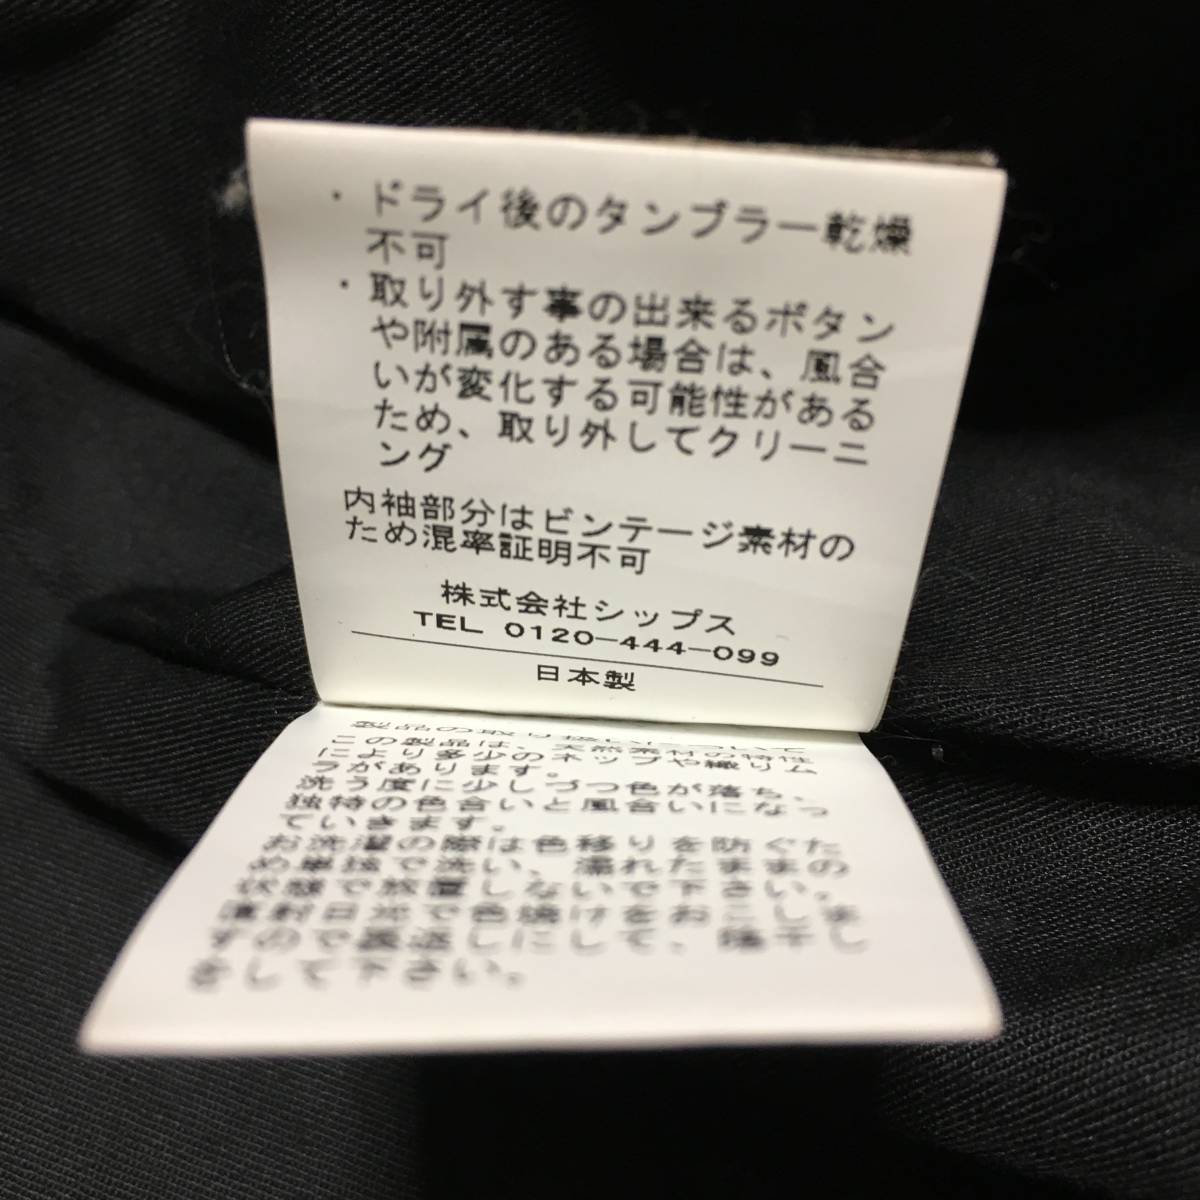 ・ドライ後のタンブラー乾燥
不可
・取り外す事の出来るボタン
や附属のある場合は、風合
いが変化する可能性がある
ため、取り外してクリーニ
ング
内袖部分はビンテージ素材の
ため混率証明不可
株式会社シップス
TEL 0120-444-099
日本製
製品の取り扱いについて
この製品は、天然素材の特性
により多少のネップや織りム
ラがあります。
洗う度に少しづつ色が落ち、
独特の色合いと風合いになっ
ていきます。
お洗濯の際は色移りを防ぐた
め単独で洗い、濡れたままの
状態で放置しないで下さい。
直射日光で色焼けをおこしま
すので裏返しにして、陰干し
をして下さい。